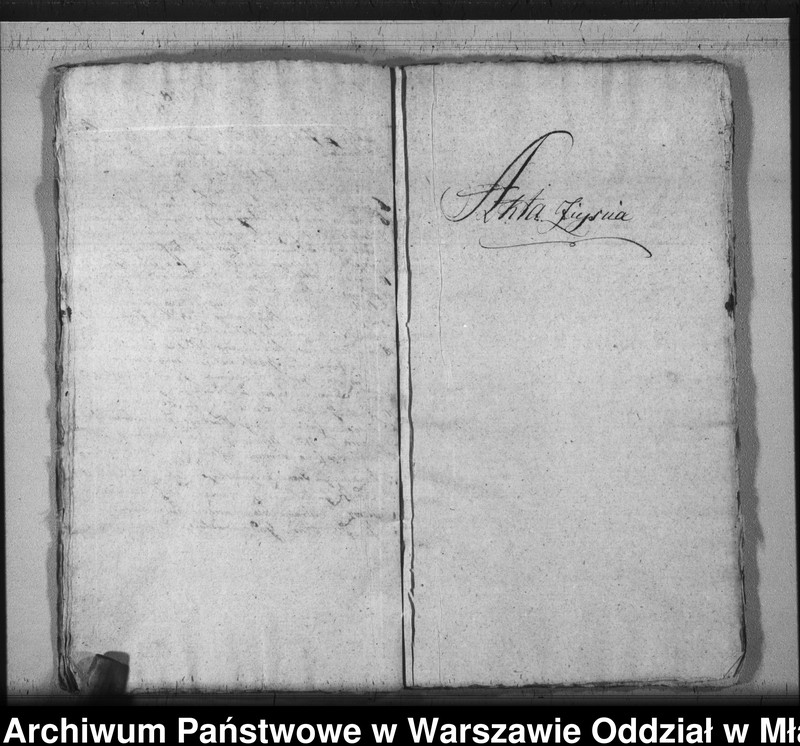 Akta Zejścia
Archiwum Państwowe w Warszawie Oddział w Mła